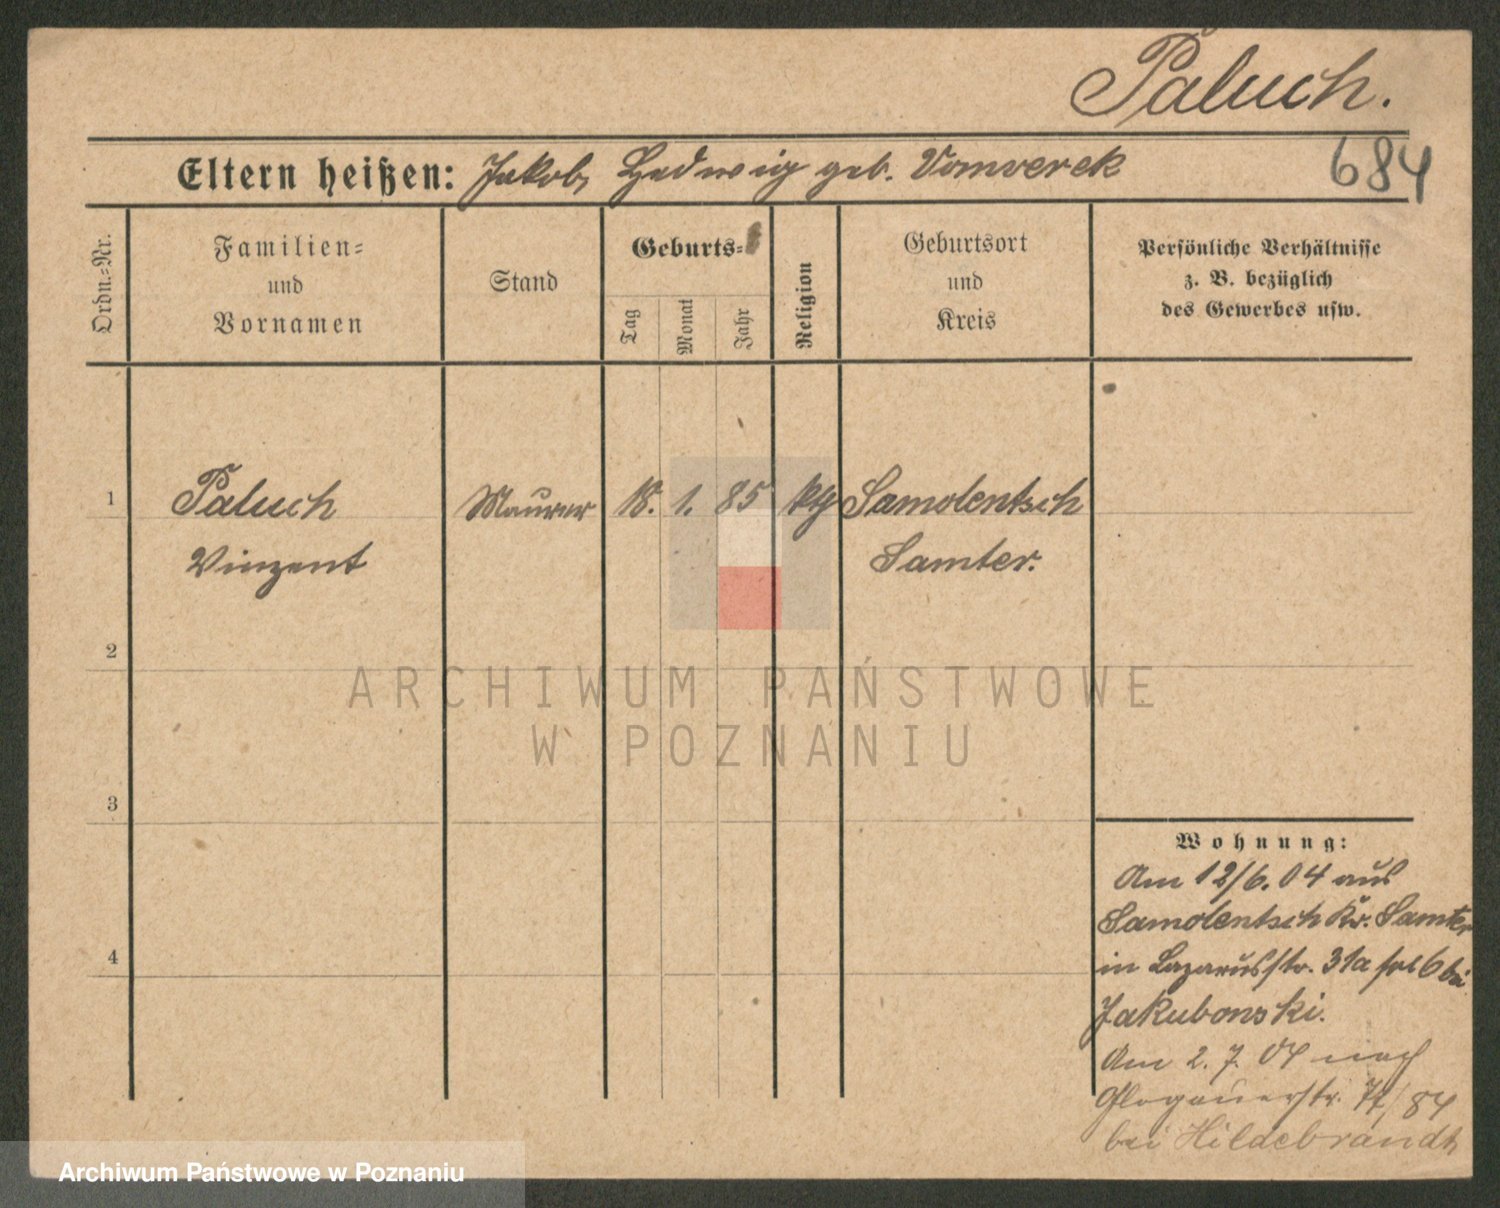 Paluch.
684
Eltern heißen: Jakob, Hedwig geb. Vomverek
Ordn.=Nr.
Familien=
und
Vornamen
Stand
Geburts=
Tag
Monat
Jahr
Religion
Geburtsort
und
Kreis
Persönliche Verhältnisse
z. B. bezüglich
des Gewerbes usw.
1
Paluch
Maurer
18. 1. 85
kth
Samolentsch
Vinzent
Samter.
2
ARCHIWUM PAŃSTWOWE
W POZNANIU
3
4
Wohnung:
Am 12/6.04 aus
Samolentsch Kr. Samter
in Lazarusstr. 31a bei
Jakubonski.
Am 2. 7. 04 nach
Glogauerstr. 84
bei Hildebrandt
Archiwum Państwowe w Poznaniu